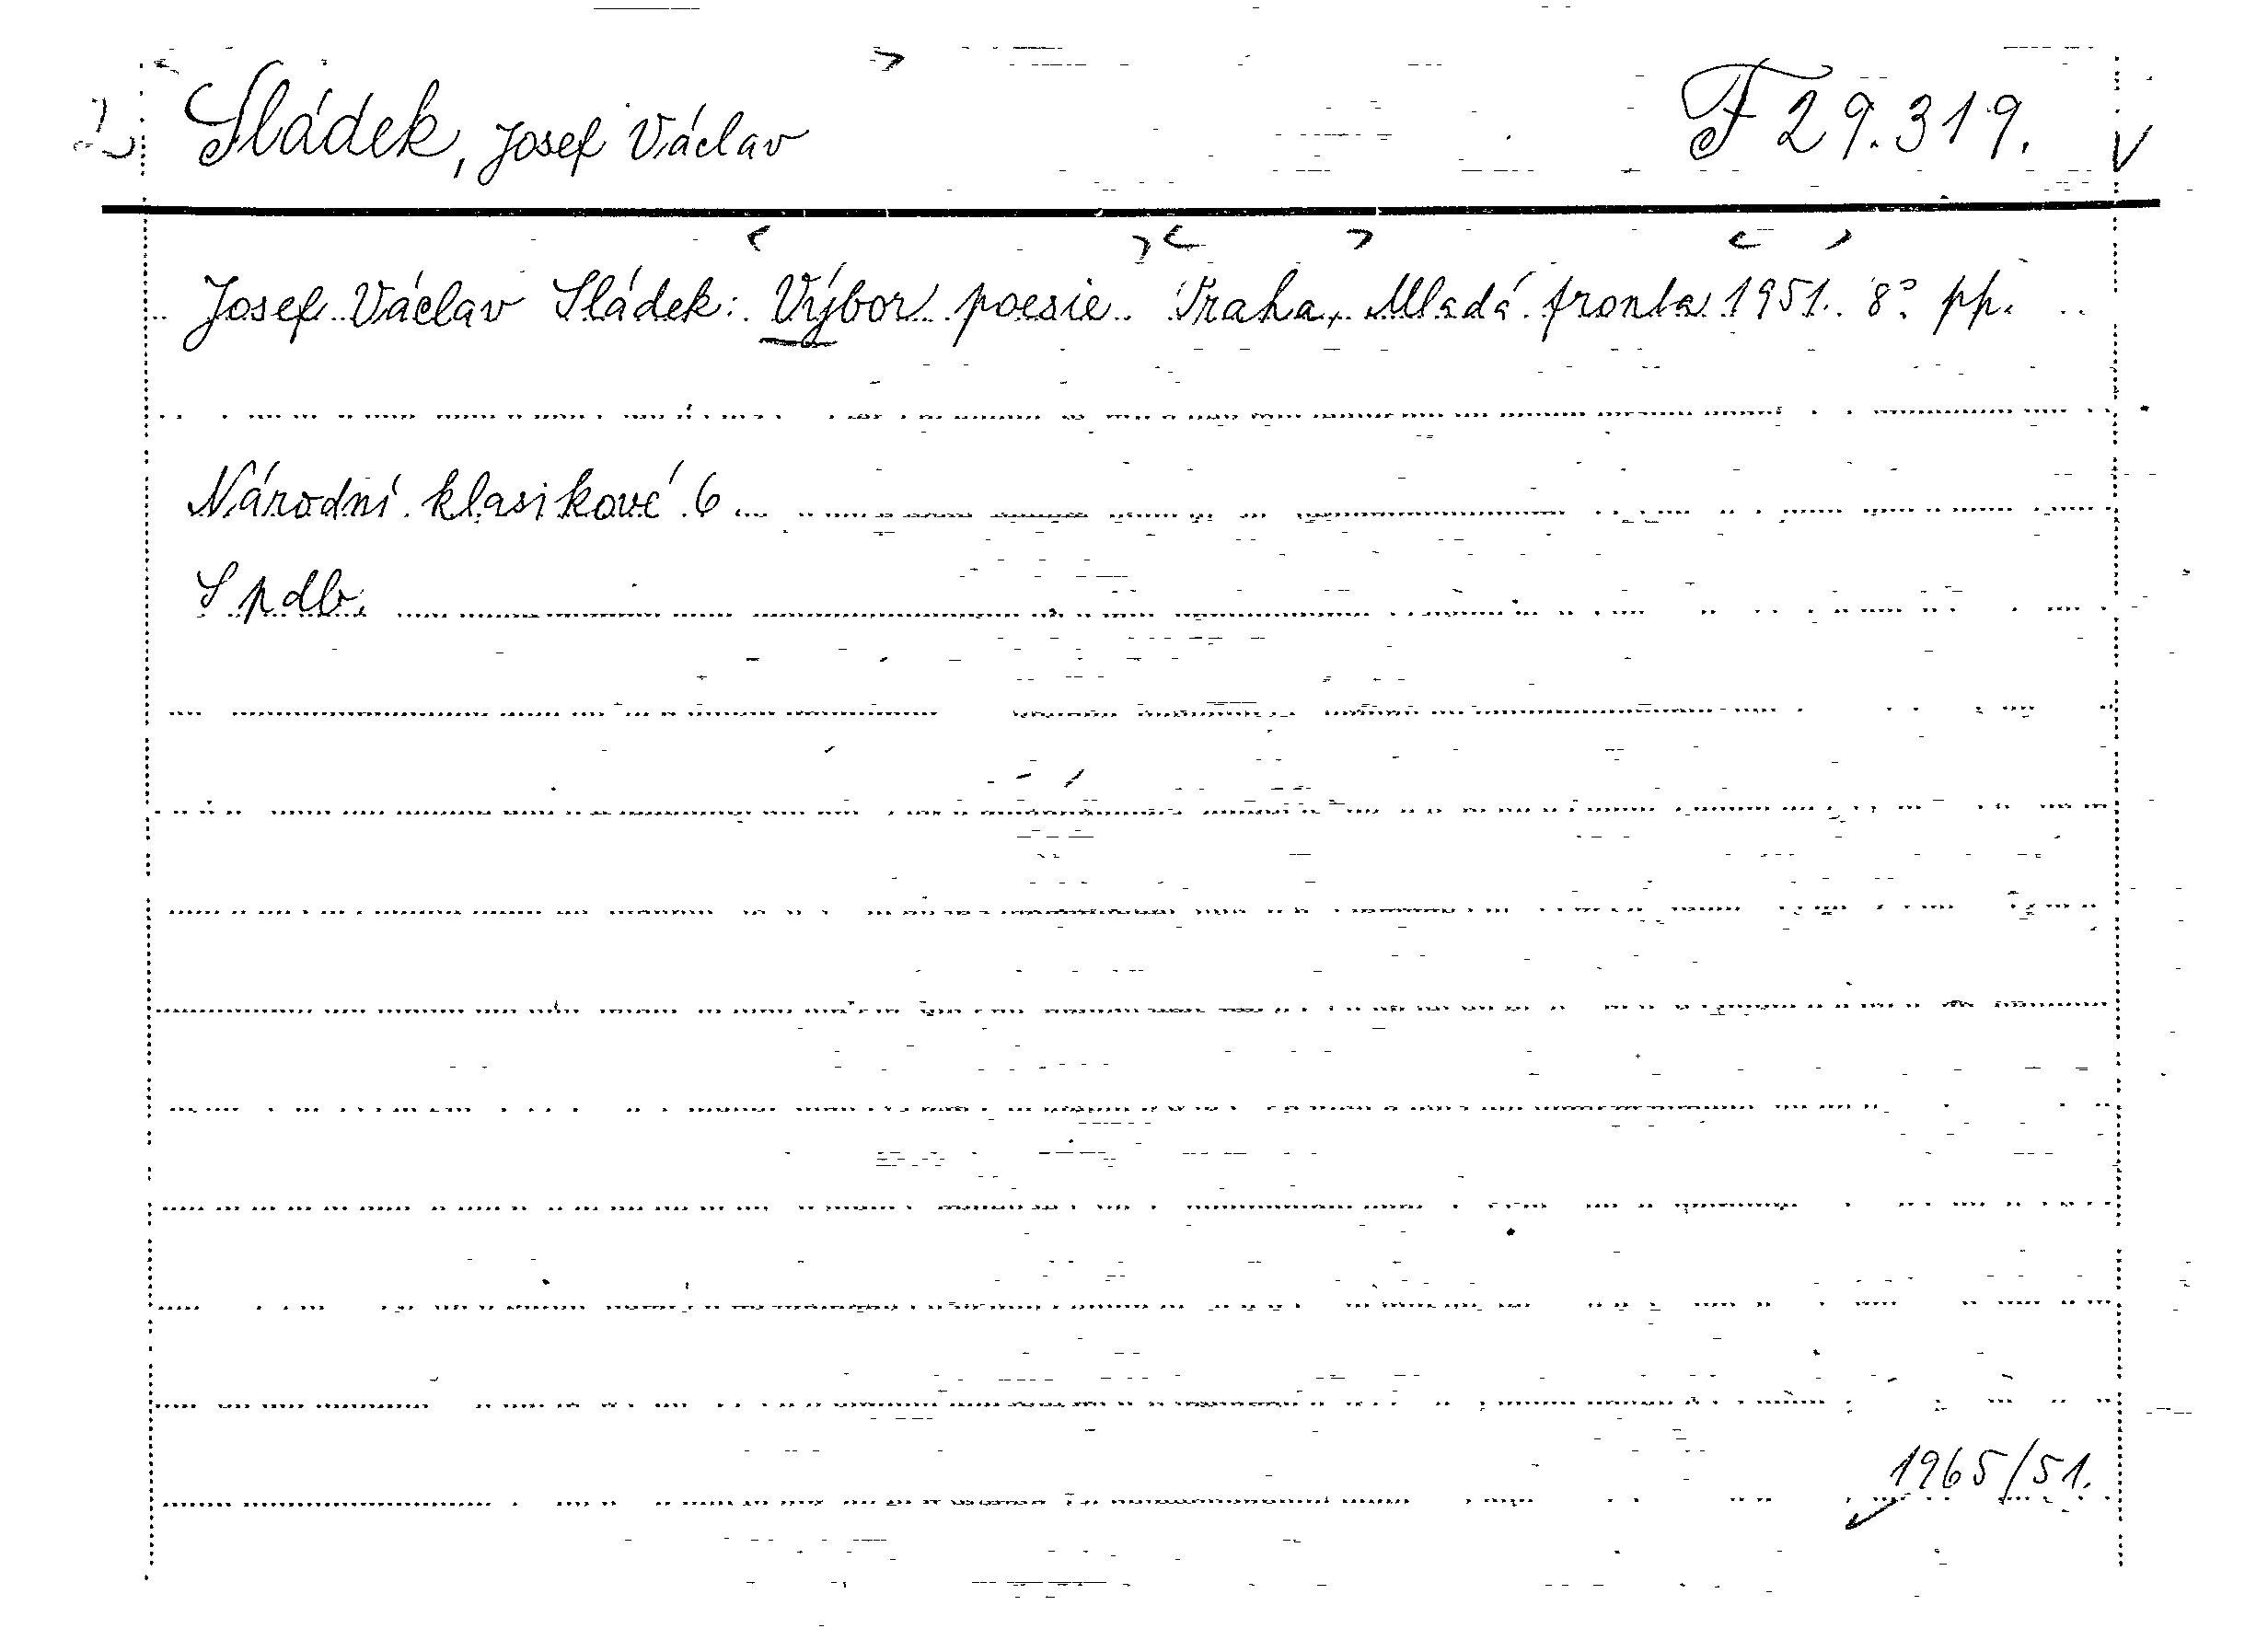 Sládek, Josef Václav F 29.319.
Josef Václav Sládek: Výbor poesie. Praha, Mladá fronta 1951. 8° pp.
Národní klasikové 6
S pdb.
1965/51.